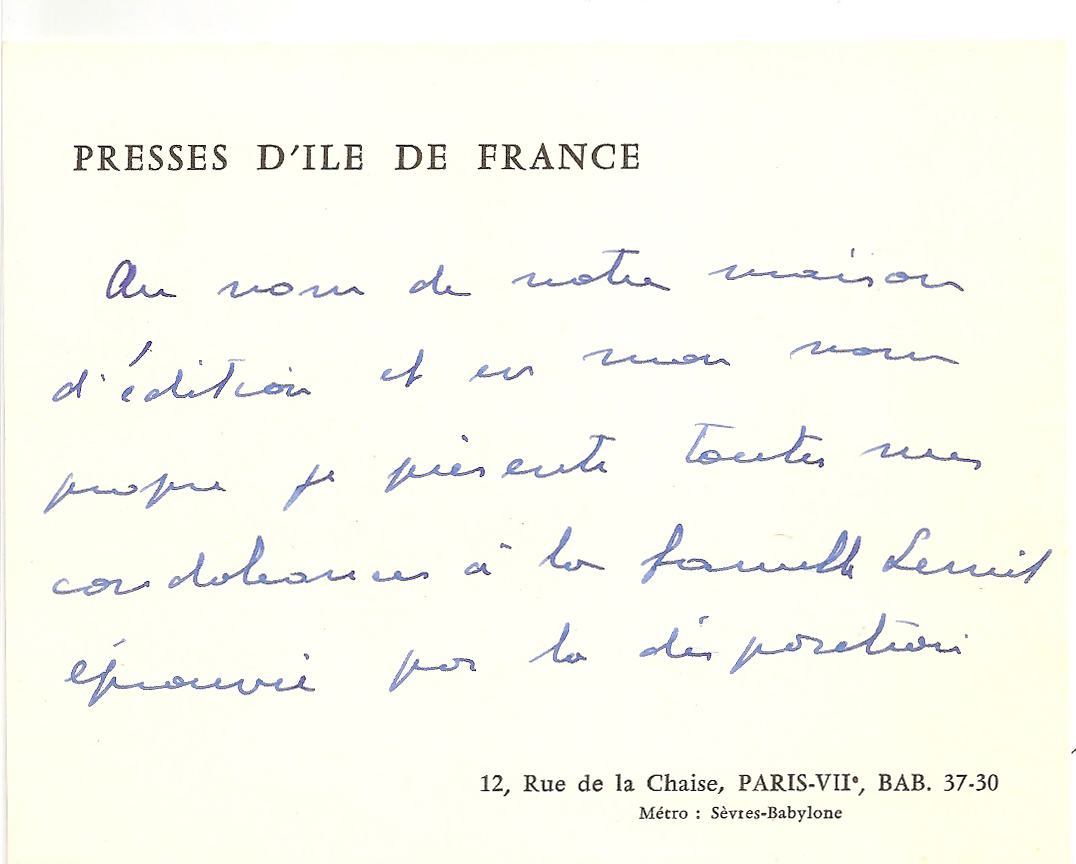 PRESSES D'ILE DE FRANCE
Au nom de notre maison
d'édition et en mon nom
propre je présente toutes mes
condoléances à la famille
éprouvée par la disparition
12, Rue de la Chaise, PARIS-VIIᵉ, BAB. 37-30
Métro : Sèvres-Babylone